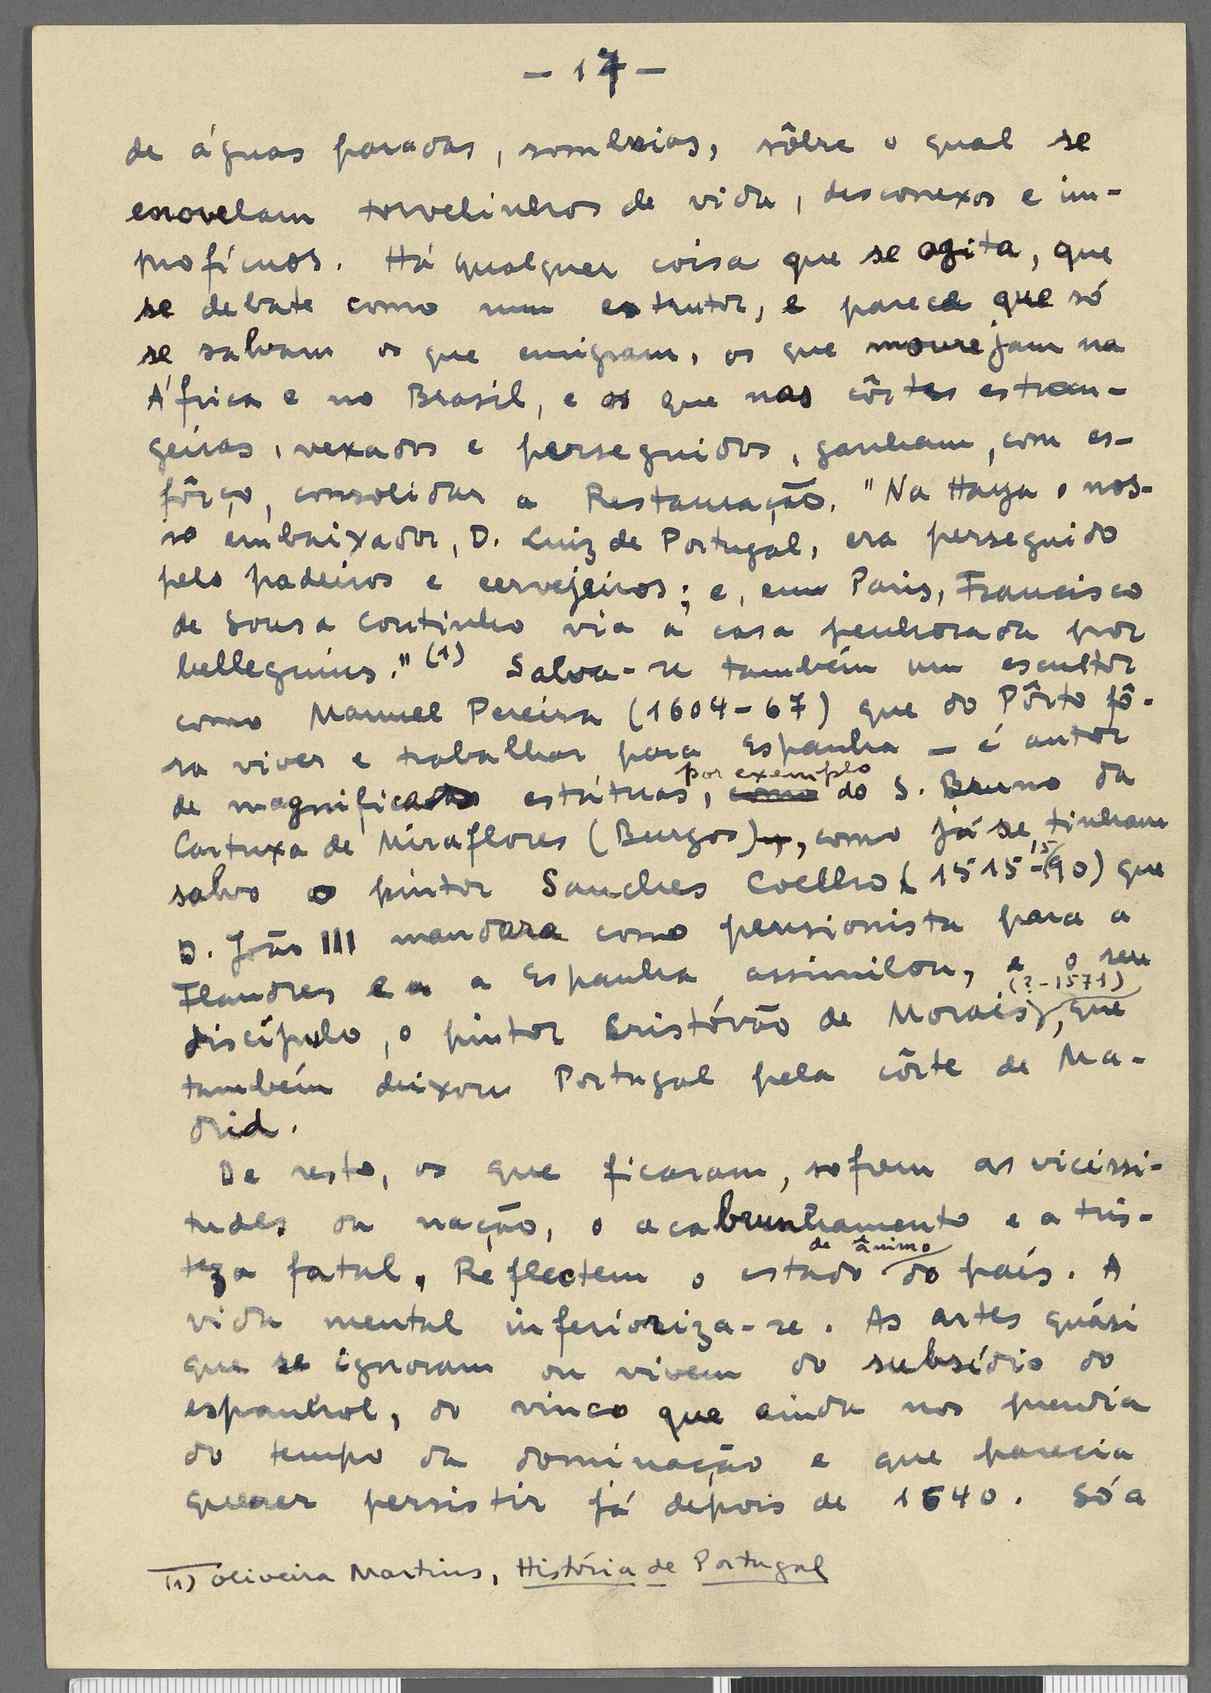 — 17 —
de águas paradas, sombrias, sôbre o qual se
enovelam torvelinhos de vida, desconexos e im-
profícuos. Há qualquer coisa que se agita, que
se debate como num estrutor, e parece que só
se salvam os que emigram, os que mourejam na
África e no Brasil, e os que nas côrtes estran-
geiras, vexados e perseguidos, ganham, com es-
fôrço, consolidar a Restauração. "Na Haya o nos-
so embaixador, D. Luiz de Portugal, era perseguido
pelo padeiros e cervejeiros; e, em Paris, Francisco
de Sousa Coutinho via a casa penhorada por
belleguins." (1) Salva-se também um escultor
como Manuel Pereira (1604-67) que do Pôrto fô-
ra viver e trabalhar para Espanha — é autor
de magnificas estátuas, por exemplo do S. Bruno da
Cartuxa de Miraflores (Burgos), como já se tinham
salvo o pintor Sanches Coelho (1515-1590) que
D. João III mandara como pensionista para a
Flandres e a Espanha assimilou, e o seu
discípulo, o pintor Cristóvão de Morais (?-1571), que
também deixou Portugal pela côrte de Ma-
drid.
De resto, os que ficaram, sofrem as vicessi-
tudes da nação, o acabrunhamento e a tris-
teza fatal. Reflectem o estado de ânimo do país. A
vida mental inferioriza-se. As artes quási
que se ignoram ou vivem do subsídio do
espanhol, do vinco que ainda nos prendia
do tempo da dominação e que parecia
querer persistir já depois de 1640. Só a
(1) Oliveira Martins, História de Portugal